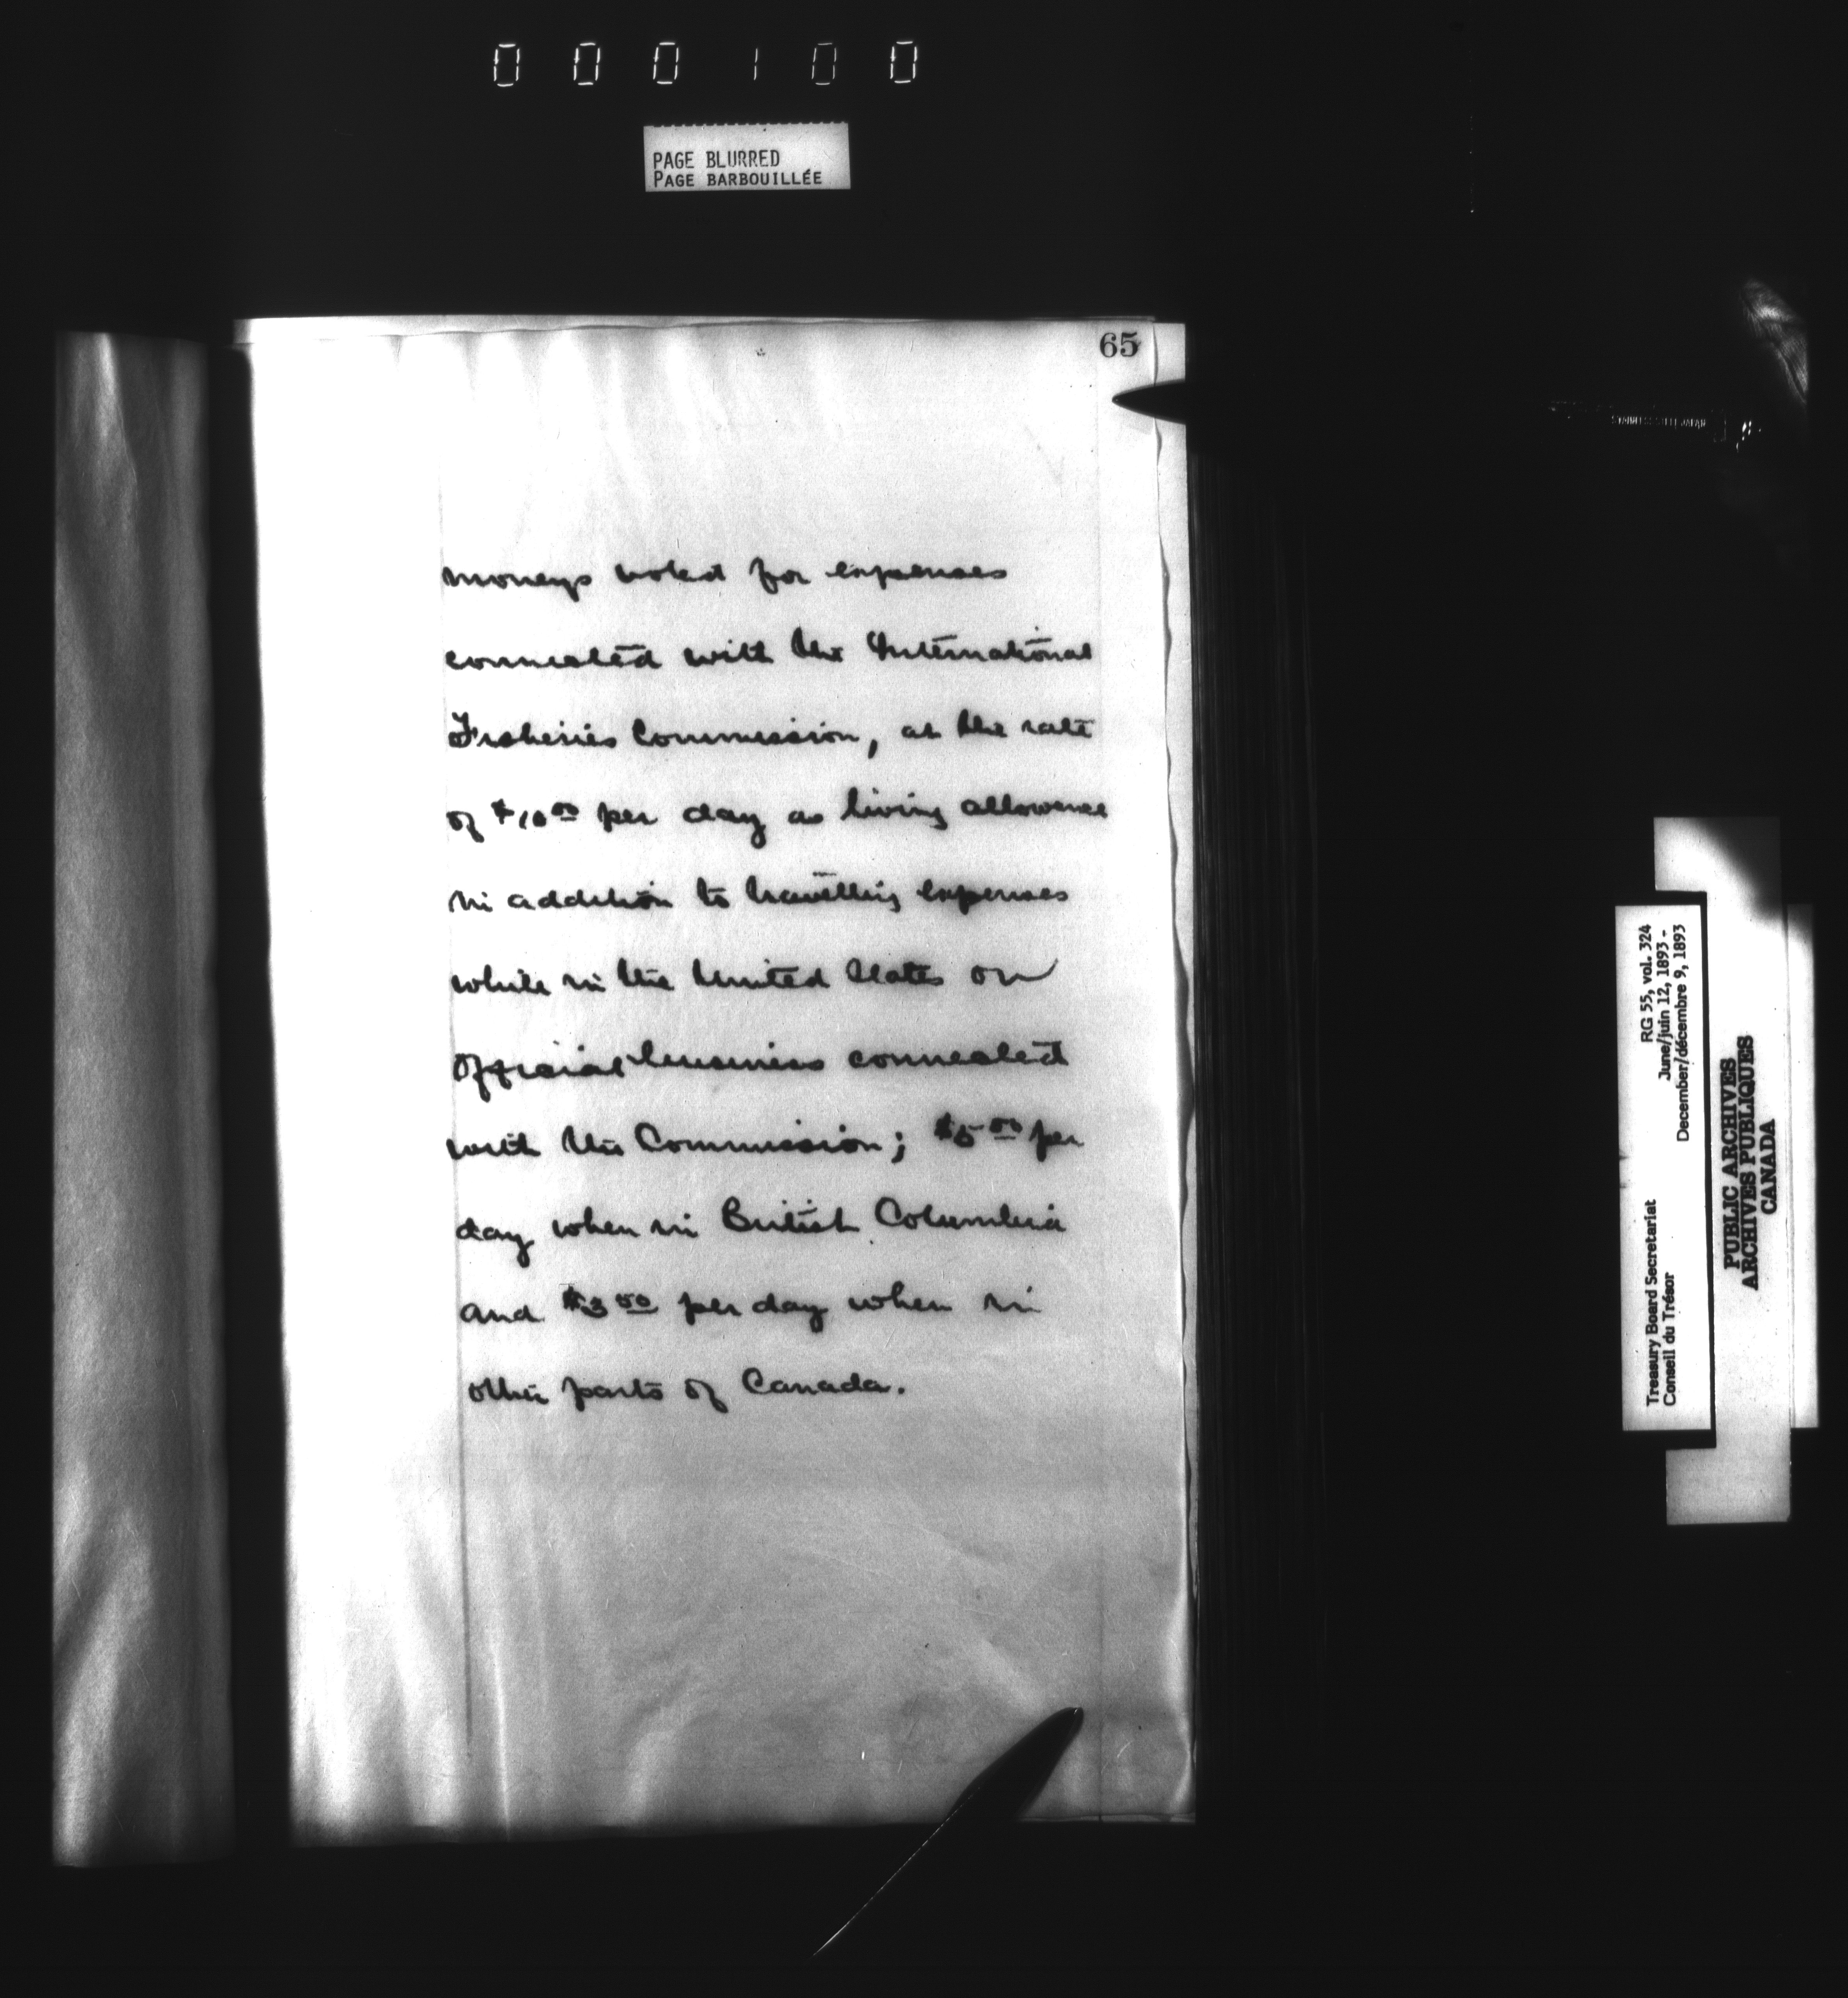 000100
PAGE BLURRED
PAGE BARBOUILLÉE
65
moneys voted for expenses
connected with the International
Fisheries Commission, at the rate
of $10 00 per day as living allowance
in addition to travelling expenses
while in the United States on
official business connected
with the Commission; $5 00 per
day when in British Columbia
and $3 00 per day when in
other parts of Canada.
Treasury Board Secretariat RG 55, vol. 324
Conseil du Trésor June/juin 12, 1893 -
December/décembre 9, 1893
PUBLIC ARCHIVES
ARCHIVES PUBLIQUES
CANADA